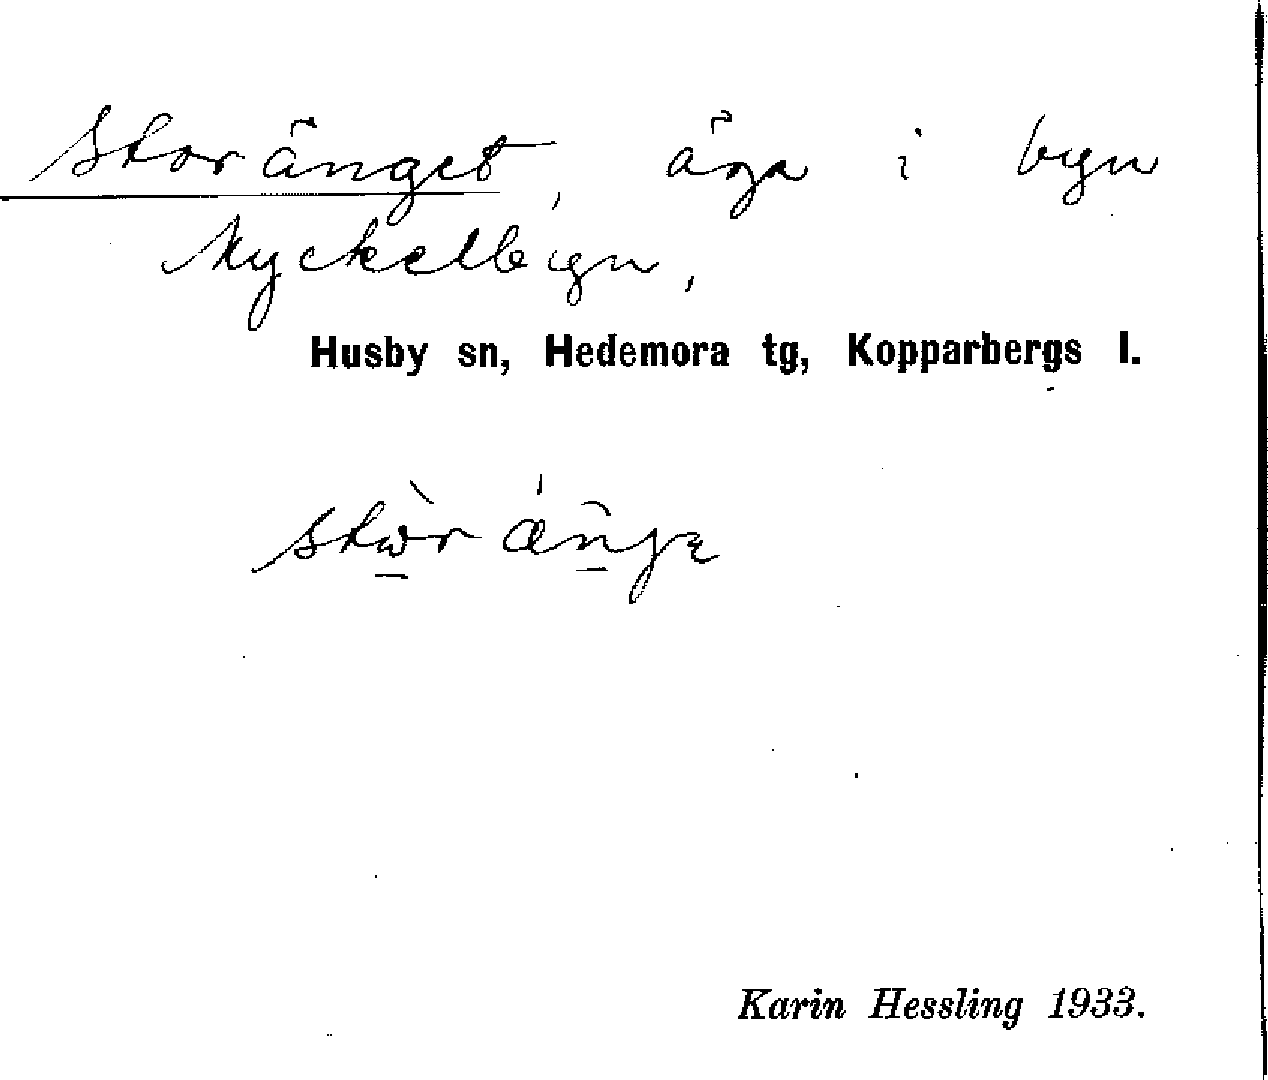 Storänget, äga i byn
Myckelbyn,
Husby sn, Hedemora tg, Kopparbergs l.
Karin Hessling 1933.